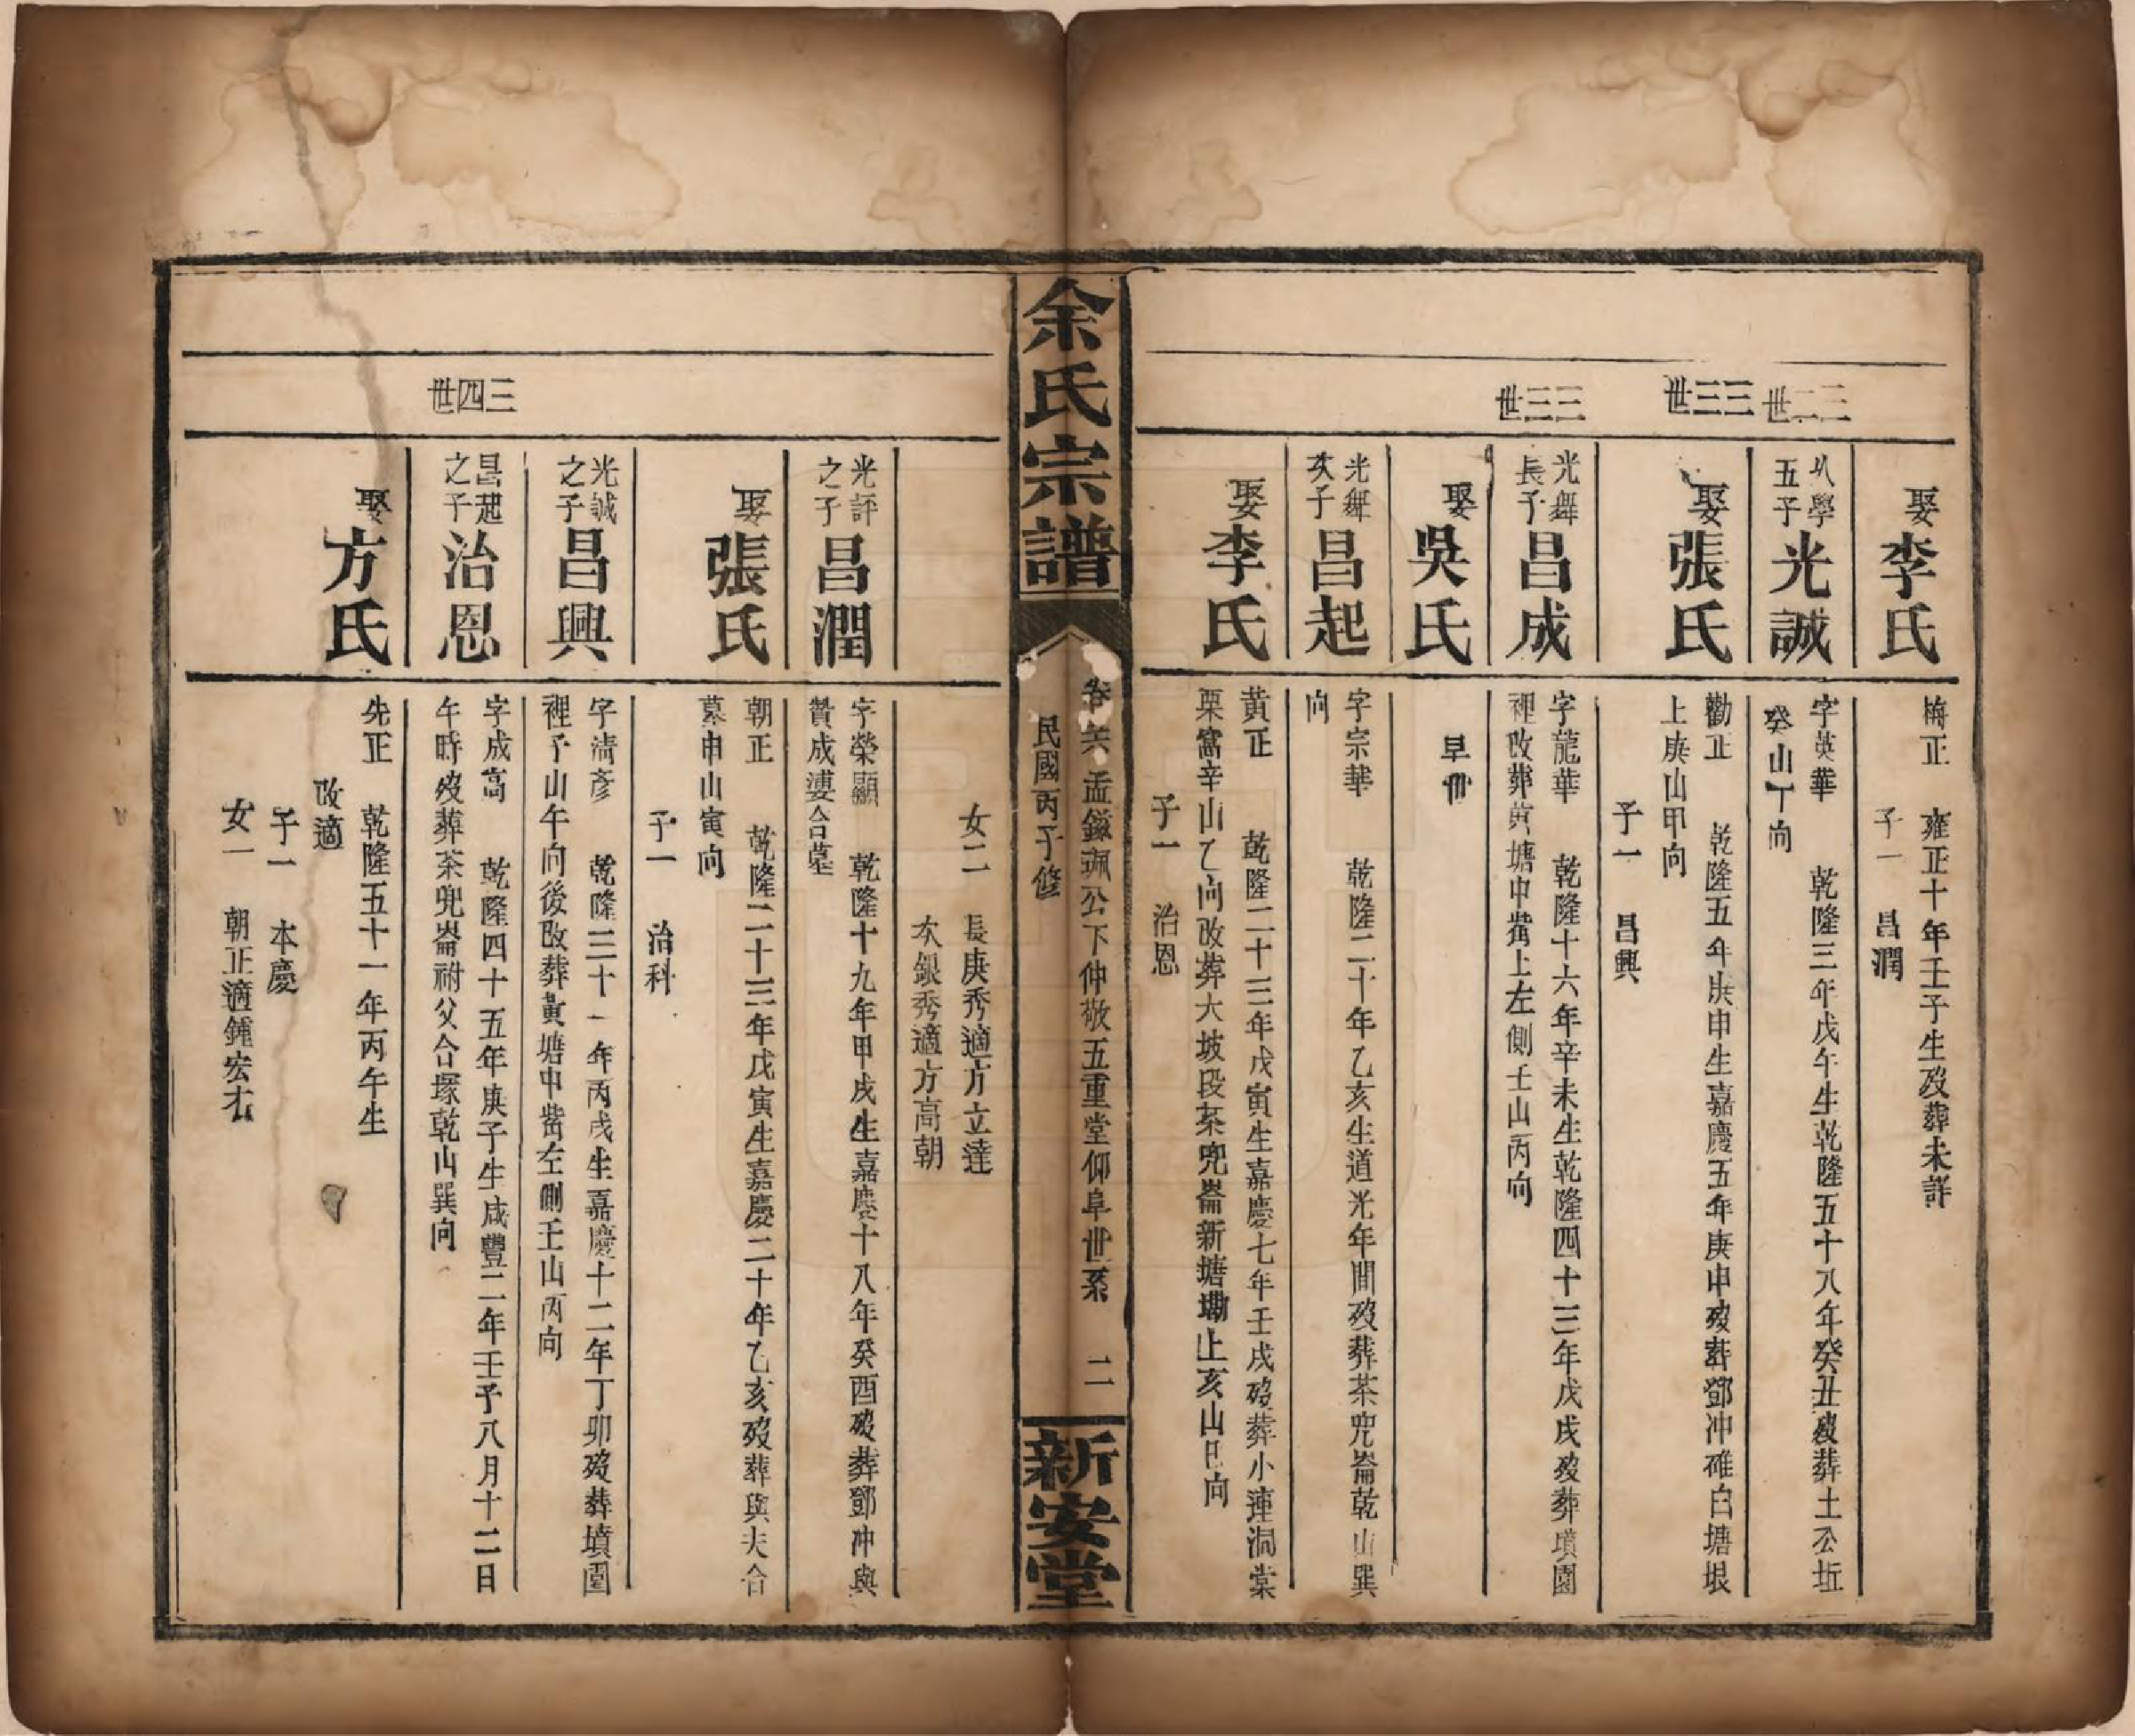 娶李氏
梅正 雍正十年壬子生歿葬未詳
子一 昌潤
三二世
從學五子光誠
字英華 乾隆三年戊午生乾隆五十八年癸丑歿葬土公坵
癸山丁向
三三世
娶張氏
勸正 乾隆五年庚申生嘉慶五年庚申歿葬鄧冲碓白塘垠
上庚山甲向
子一 昌興
三三世
光舞長子昌成
字龍華 乾隆十六年辛未生乾隆四十三年戊戌歿葬墳園
裡改葬黃塘中嘴上左側壬山丙向
娶吳氏
早卌
光舞次子昌起
字宗華 乾隆二十年乙亥生道光年間歿葬茶兜崙乾山巽
向
娶李氏
黃正 乾隆二十三年戊寅生嘉慶七年壬戌歿葬小連洞棠
栗窩辛山乙向改葬大坡段茶兜崙新塘墈上亥山巳向
子一 治恩
余氏宗譜
卷六 孟鎰珮公下仲敬五重堂仰阜世系 二
民國丙子修
新安堂
女二 長庚秀適方立達
次銀秀適方高朝
光評之子昌潤
字榮顯 乾隆十九年甲戌生嘉慶十八年癸酉歿葬鄧冲與
贊成婆合墓
娶張氏
朝正 乾隆二十三年戊寅生嘉慶二十年乙亥歿葬與夫合
墓申山寅向
子一 治科
光誠之子昌興
字清彥 乾隆三十一年丙戌生嘉慶十二年丁卯歿葬墳園
裡子山午向後改葬黃塘中嘴左側壬山丙向
三四世
昌起之子治恩
字成高 乾隆四十五年庚子生咸豐二年壬子八月十二日
午時歿葬茶兜崙祔父合塚乾山巽向
娶方氏
先正 乾隆五十一年丙午生
改適
子一 本慶
女一 朝正適鍾宏右